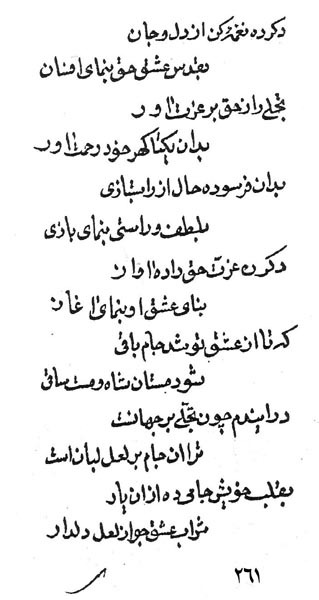 دگر ده نغمه کن از دل و جان
بقدس عشق حق بنمای افنان
تجلی راز حق بر عزت آور
بدان یکتا گهر خود رحمت آور
بدان فرسوده حال از راستبازی
بلطف و راستی بنمای بازی
دگر ن عزت حق داده آواز
بنای عشق او بنمای آغاز
که تا از عشق نوشد جام باقی
شود مستان شاه و مست ساقی
در این دم چون تجلی بر جهانست
تو را آن جام بر لعل لبان است
بقلب خویش جامی ده از آن یار
شراب عشق جو از لعل دلدار
۲۶۱